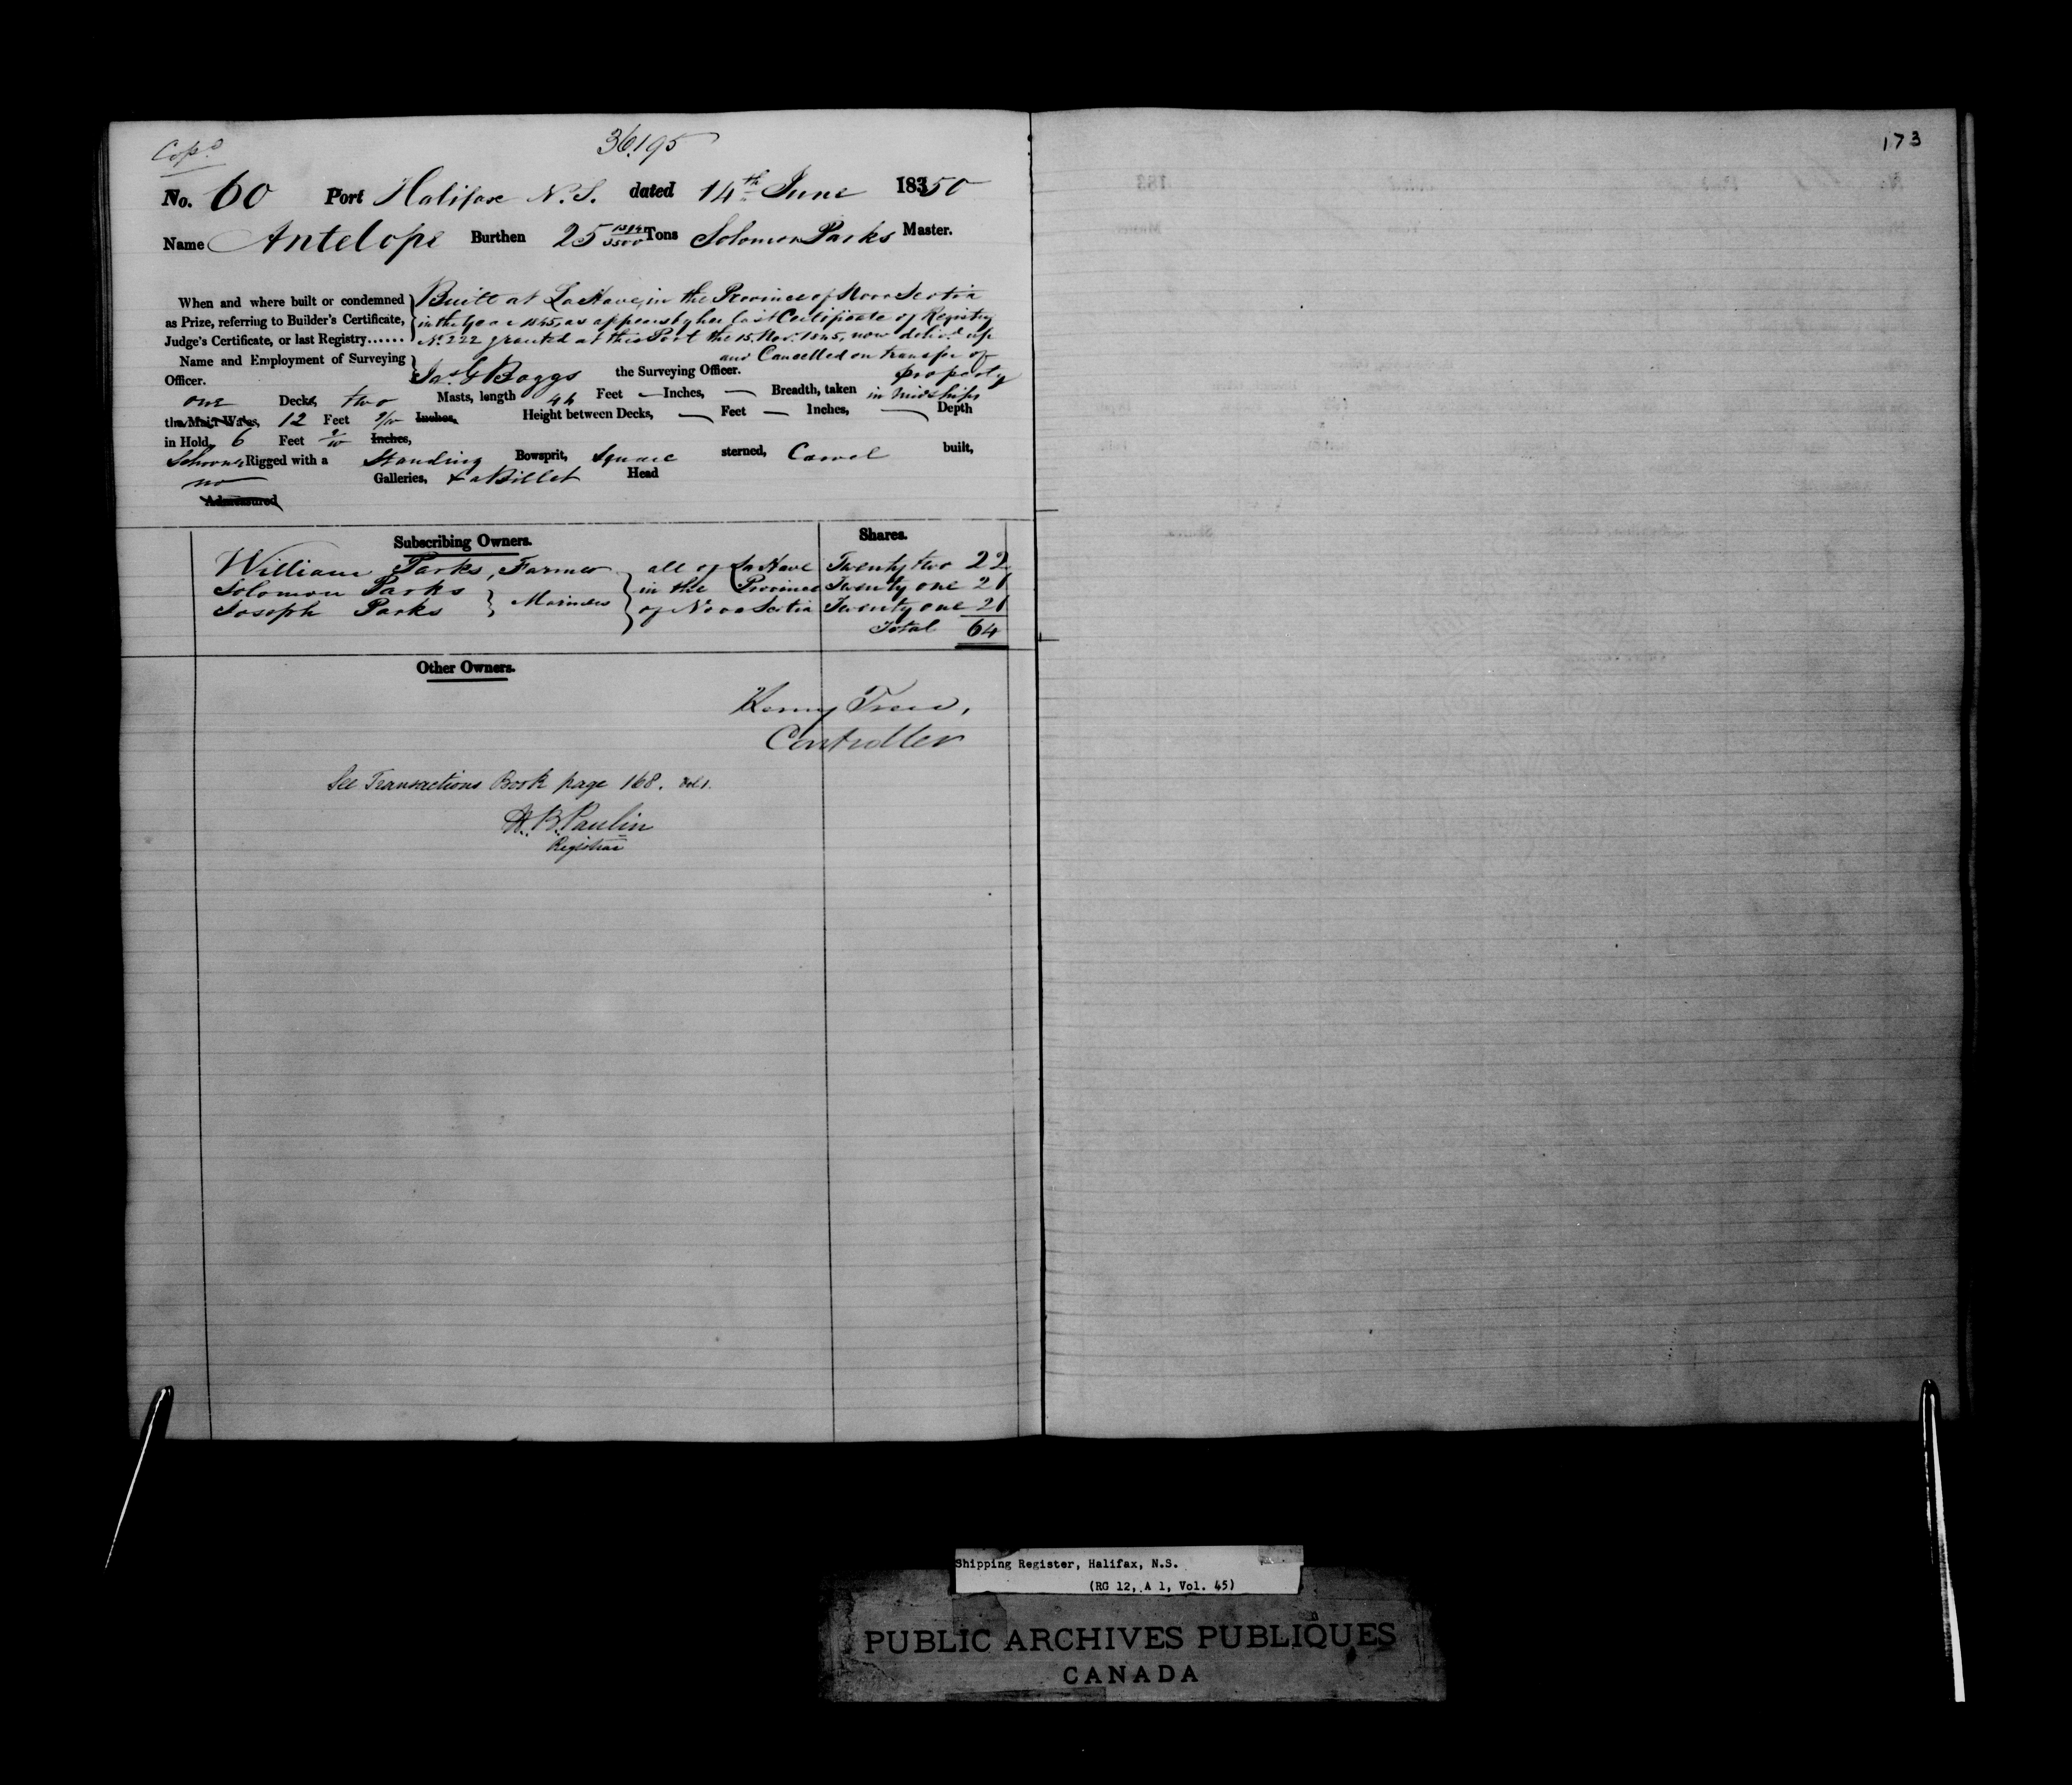 Cop.d
36195
No. 60 Port Halifax N.S. dated 14th June 18350
Name Antelope Burthen 25 Tons Solomon Parks Master.
When and where built or condemned as Prize, referring to Builder's Certificate, Judge's Certificate, or last Registry......
Built at LaHave, in the Province of Nova Scotia
in the Year 1845, as appears by her last Certificate of Registry
No. 222 granted at this Port the 15. Nov. 1845, now deliv.d up
and Cancelled on transfer of
property
Name and Employment of Surveying Officer.
Jas G Boggs the Surveying Officer.
one Decks, two Masts, length 44 Feet — Inches, — Breadth, taken in Midships
the Main Wales, 12 Feet 2/10 Inches, Height between Decks, — Feet — Inches, — Depth
in Hold 6 Feet 2/10 Inches,
Schooner Rigged with a Standing Bowsprit, Square sterned, Carvel built,
no Galleries, & a Billet Head
Admeasured
Subscribing Owners. Shares.
William Parks, Farmer all of LaHave Twenty two 22
Solomon Parks Mariners in the Province Twenty one 21
Joseph Parks of Nova Scotia Twenty one 21
Total 64
Other Owners.
Henry Trew,
Controller
See Transactions Book page 168. Vol 1.
H. B. Paulin
Registrar
173
Shipping Register, Halifax, N.S.
(RG 12, A 1, Vol. 45)
PUBLIC ARCHIVES PUBLIQUES
CANADA